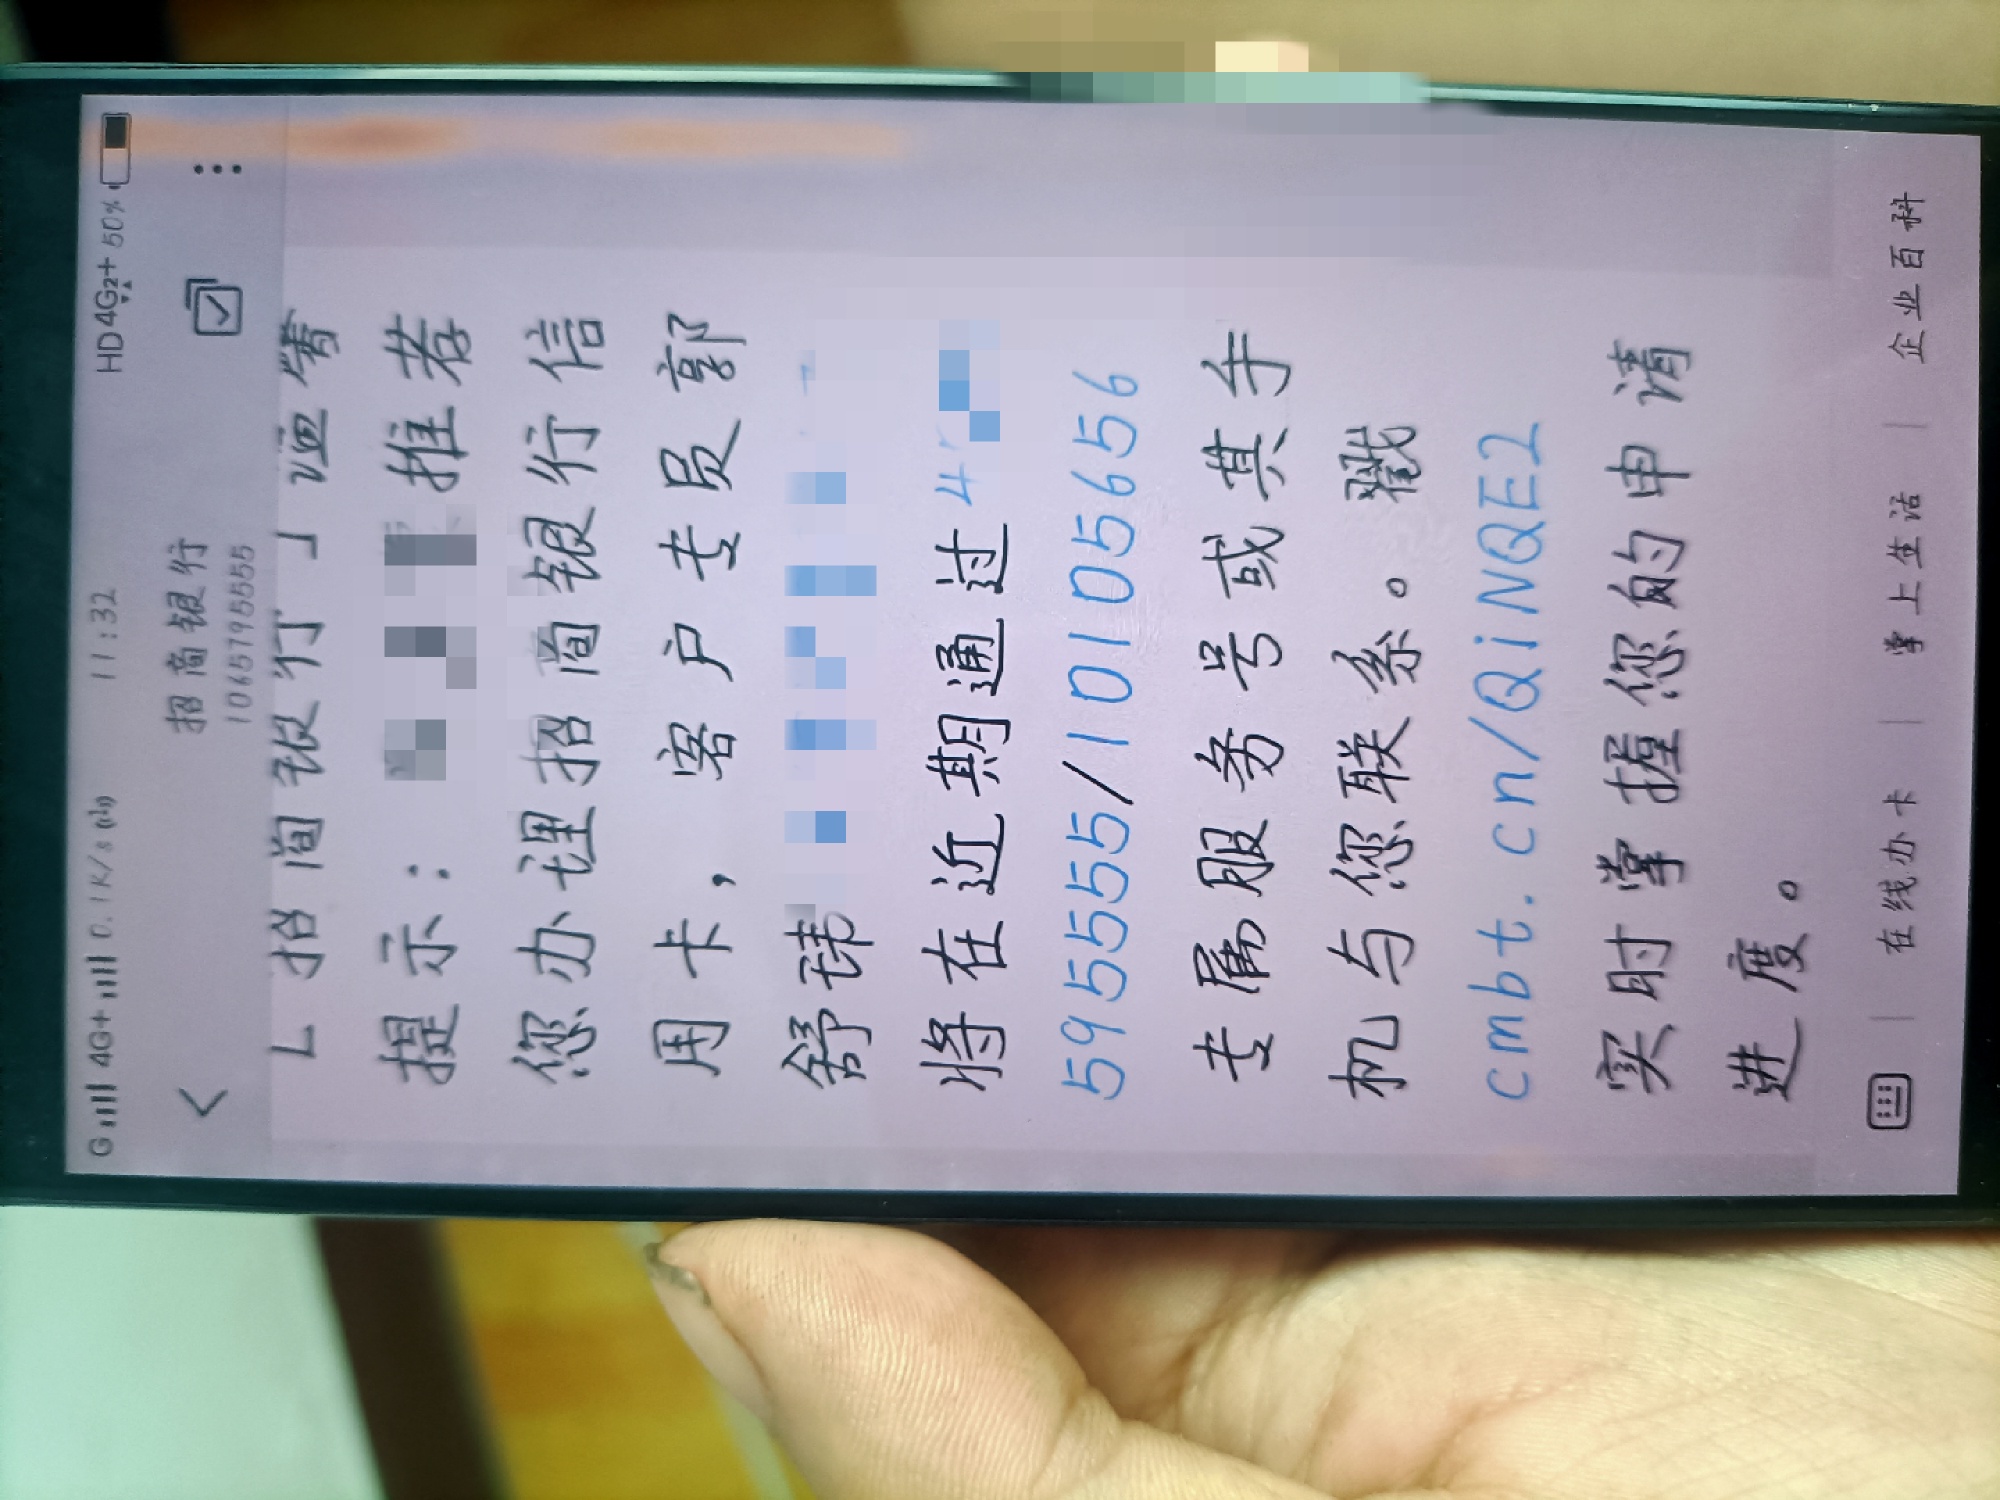 G 4G+ 0.1K/s 11:32 HD 4G2+ 50%
招商银行
1065795555
提示： 推荐
您办理招商银行信
用卡，客户专员郭
舒玮
将在近期通过4
5955555/10105656
专属服务号或其手
机与您联系。戳
cmbt.cn/QiNQE2
实时掌握您的申请
进度。
在线办卡 | 掌上生活 | 企业百科